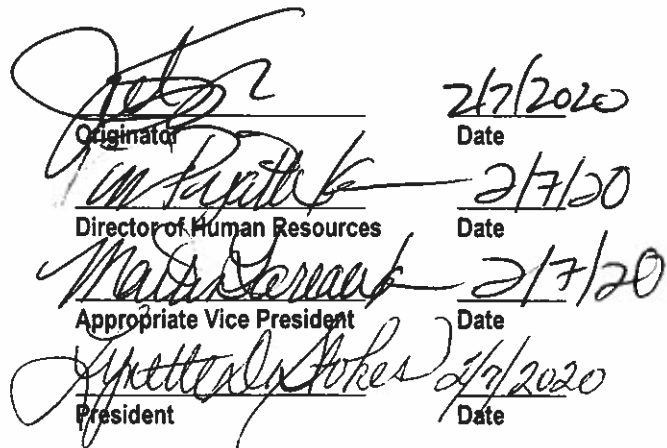 2/7/2020
Originator Date
2/7/20
Director of Human Resources Date
2/7/20
Appropriate Vice President Date
Lynette D. Stokes 2/7/2020
President Date